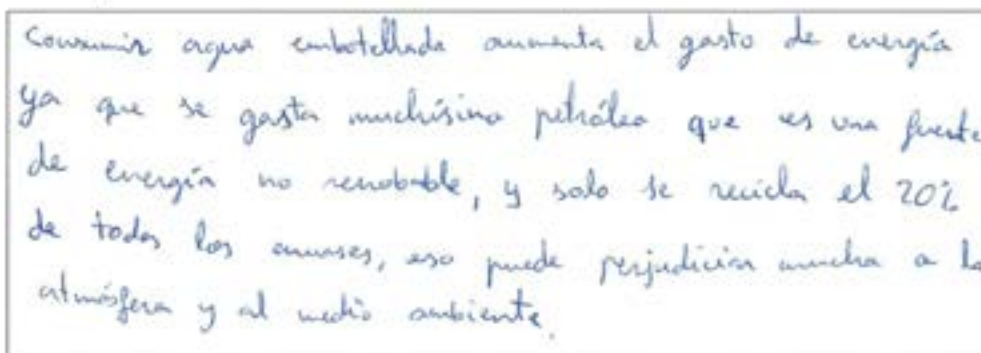 Consumir agua embotellada aumenta el gasto de energía
ya que se gasta muchísimo petróleo que es una fuente
de energía no renobable, y solo se recicla el 20%
de todos los envases, eso puede perjudicar mucho a la
atmósfera y al medio ambiente.